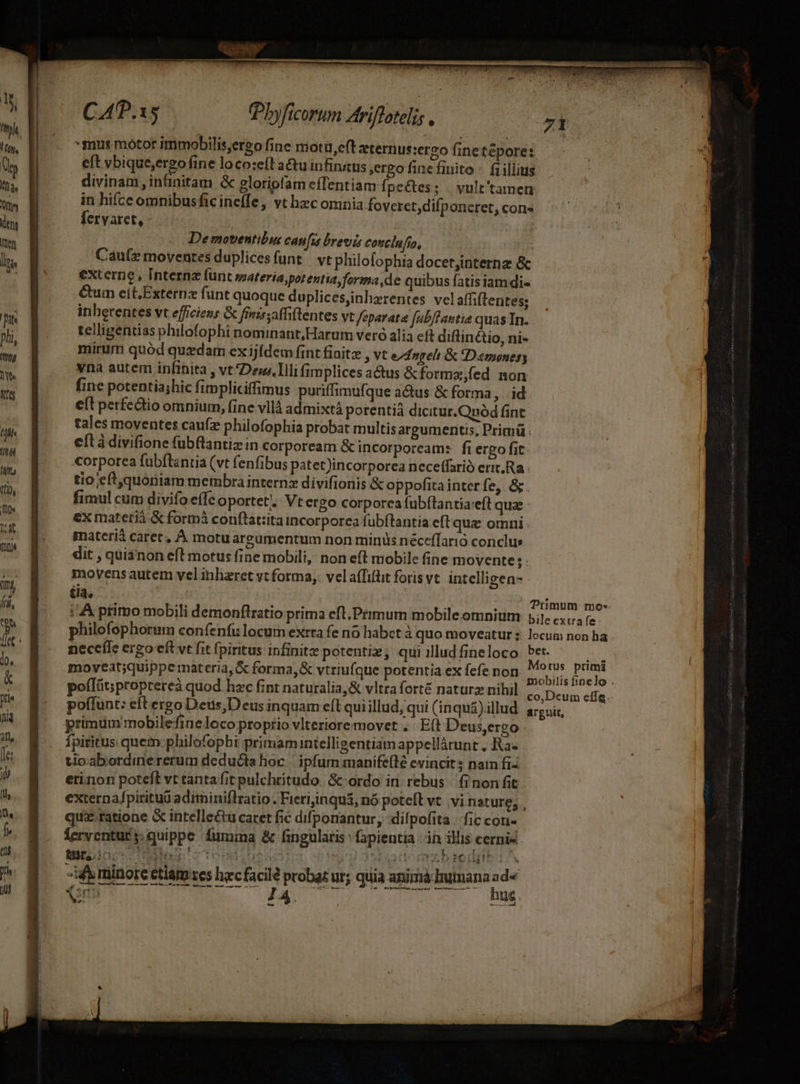 CAP.15 Physicorum Aristotelis. 71
mus motor immobilis,ergo sine motu,est æternus:ergo sine tẽpore:
est vbique,ergo sine loco:est actu infinitus,ergo sine finito: si illius
divinam, infinitam & gloriosam essentiam spectes; vult tamen
in hisce omnibus sic inesse, vt hæc omnia foveret,disponeret, con-
servaret.
De moventibus causis brevis conclusio.
Causæ moventes duplices sunt vt philosophia docet,internæ &
externę, Internæ sunt materia,potentia,forma,de quibus satis iam di-
ctum est.Externæ sunt quoque duplices,inhærentes vel assistentes;
inhęrentes vt efficiens & finis;assistentes vt separatæ substantiæ quas In-
telligentias philosophi nominant.Harum verò alia est distinctio, ni-
mirum quòd quædam exijsdem sint finitæ, vt Angeli & Dæmones;
vna autem infinita, vt Deus.Illi simplices actus & formæ;sed non
sine potentia;hic simplicissimus purissimusque actus & forma, id
est perfectio omnium, sine vllâ admixtâ potentiâ dicitur.Quòd sint
tales moventes causæ philosophia probat multis argumentis, Primũ
est à divisione substantiæ in corpoream & incorpoream: si ergo sit
corporea substantia (vt sensibus patet)incorporea necessariò erit.Ra
tio est,quoniam membra internæ divisionis & opposita inter se, &
simul cum diviso esse oportet. Vt ergo corporea substantia est quæ
ex materiâ & formâ constat:ita incorporea substantia est quæ omni
materiâ caret. A motu argumentum non minùs necessariò conclu-
dit, quia non est motus sine mobili, non est mobile sine movente;
movens autem vel inhæret vt forma, vel assistit foris vt intelligen-
tia.
A primo mobili demonstratio prima est.Primum mobile omnium
philosophorum consensu locum extra se nõ habet à quo moveatur:
necesse ergo est vt sit spiritus infinitæ potentiæ, qui illud sine loco
moveat;quippe materia, & forma,& vtriusque potentia ex sese non
possũt;proptereà quod hæc sint naturalia,& vltra fortẽ naturæ nihil
possunt: est ergo Deus,Deus inquam est qui illud, qui (inquã) illud
primum mobile sine loco proprio vlteriore movet. Est Deus,ergo
spiritus quem philosophi primam intelligentiam appellârunt. Ra-
tio ab ordine rerum deducta hoc ipsum manifestè evincit; nam fi-
eri non potest vt tanta sit pulchritudo & ordo in rebus si non sit
externa spirituũ administratio. Fieri,inquã, nõ potest vt vi naturę,
quæ ratione & intellectu caret sic disponantur, disposita sic con-
serventur; quippe summa & singularis sapientia in illis cerni-
tur.
A minore etiam res hæc facilè probatur; quia anima humana ad-
I 4 huc
Primum mo-
bile extra se
locum non ha
bet.
Motus primi
mobilis sine lo-
co,Deum esse
arguit,